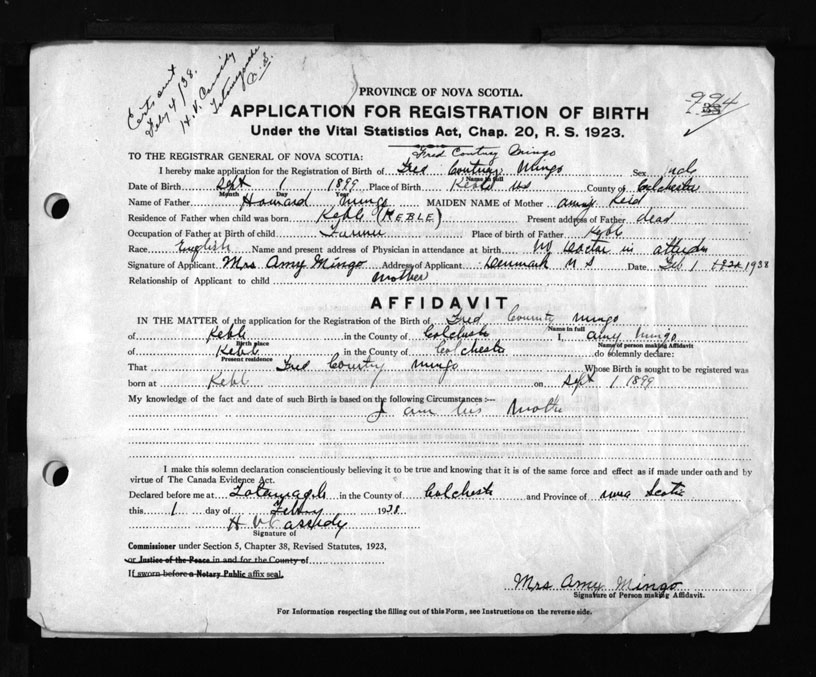 Certs sent
Feby 4/38.
H.V. Cassidy
Tatamagouche
N.S.
994
PROVINCE OF NOVA SCOTIA.
APPLICATION FOR REGISTRATION OF BIRTH
Under the Vital Statistics Act, Chap. 20, R. S. 1923.
Fred Contney Mingo
TO THE REGISTRAR GENERAL OF NOVA SCOTIA:
I hereby make application for the Registration of Birth of Fred Mingo Sex
Name in full
Date of Birth Sept 1 1899 Place of Birth Keble NS County of Colchester
Month Day Year
Name of Father Howard Mingo MAIDEN NAME of Mother Amy Reid
Residence of Father when child was born Keble (KEBLE) Present address of Father dead
Occupation of Father at Birth of child Farmer Place of birth of Father Kebl
Race English Name and present address of Physician in attendance at birth no doctor in
Signature of Applicant Mrs Amy Mingo Address of Applicant Denmark N S Date Feb 1 1938
Relationship of Applicant to child mother
AFFIDAVIT
IN THE MATTER of the application for the Registration of the Birth of Fred Mingo
Name in full
of Kebl in the County of Colchester I, Amy Mingo
Birth place Name of person making Affidavit
of Kebl in the County of Colchester do solemnly declare:
Present residence
That Fred Mingo Whose Birth is sought to be registered was
born at Kebl on Sept 1 1899
My knowledge of the fact and date of such Birth is based on the following Circumstances :—
I am his Mother
I make this solemn declaration conscientiously believing it to be true and knowing that it is of the same force and effect as if made under oath and by
virtue of The Canada Evidence Act.
Declared before me at in the County of Colchester and Province of Nova Scotia
this 1 day of Febry 1938
H V Cassidy
Signature of
Commissioner under Section 5, Chapter 38, Revised Statutes, 1923,
or Justice of the Peace in and for the County of
If sworn before a Notary Public affix seal.
Mrs Amy Mingo
Signature of Person making Affidavit.
For Information respecting the filling out of this Form, see Instructions on the reverse side.